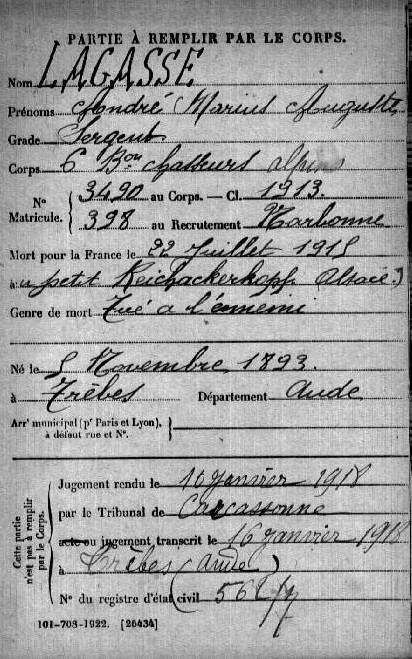 PARTIE À REMPLIR PAR LE CORPS.
Nom LAGASSE
Prénoms André Marius Auguste
Grade Sergent.
Corps 6 Bon Chasseurs alpins
N° Matricule. { 3490 au Corps. — Cl. 1913.
398 au Recrutement Narbonne
Mort pour la France le 22 Juillet 1915
à petit Reichackerkopf Alsace)
Genre de mort Tué a l'ennemi
Né le 5 Novembre 1893.
à Trèbes Département Aude
Arr' municipal (p' Paris et Lyon),
à défaut rue et N°.
Cette partie n'est pas à remplir par le Corps.
Jugement rendu le 10 janvier 1918
par le Tribunal de Carcassonne
acte ou jugement transcrit le 16 janvier 1918
à Trèbes (Aude)
N° du registre d'état civil
101-708-1922. [26434]